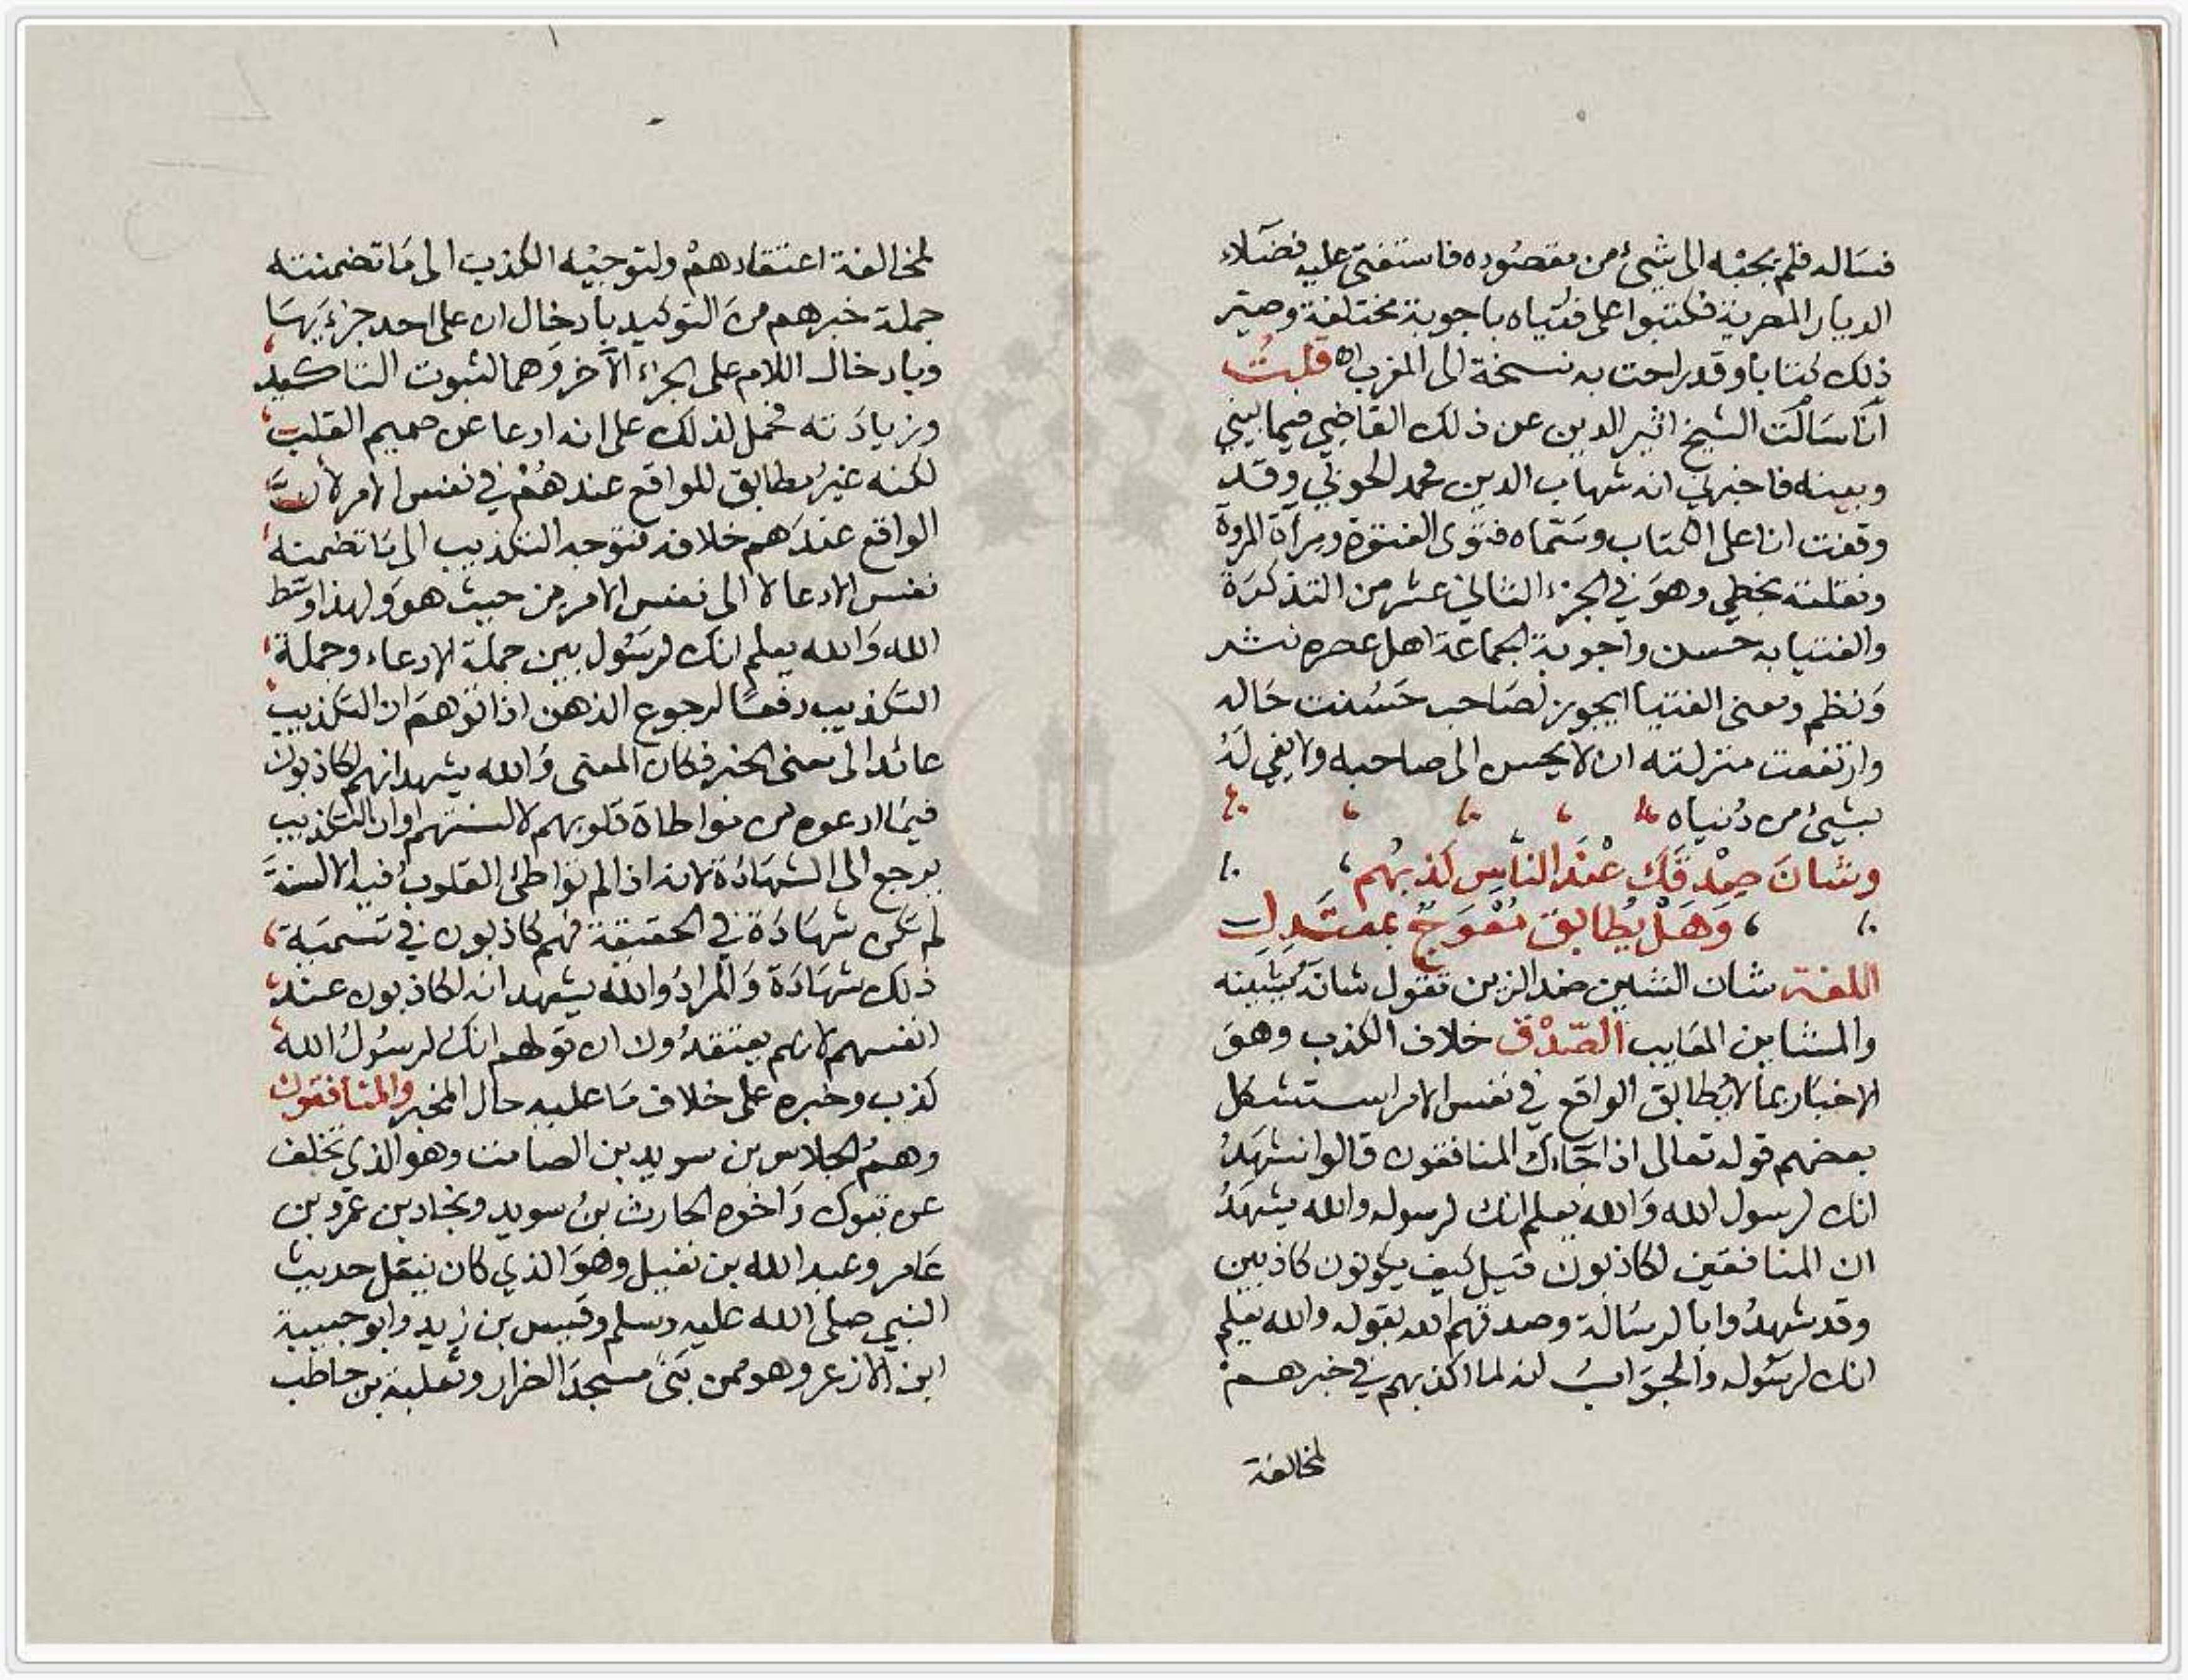 فسَاله فلم يجبْه الى شيئ من مقصُوده فاستفتى عليه فضلاء
الديار المصرية فكتبوا على فتياه باجوبة مختلفة وصيّر
ذلك كتابا وقد راحت به نسخة الى المغرب اه قلتُ
انا سَالت الشيخ اثير الدين عن ذلك القاضي فيما بيني
وبينه فاخبرني انه شهاب الدين محمد الخويّ وقد
وقفت انا على الكتاب وسَمّاه فتوى الفتوّة ومرآة المروة
ونقلته بخطي وهوَ في الجزء الثاني عشر من التذكرَة
والفتيا به حسن واجوبة الجماعة اهل عصره نثر
وَنظم ومعنى الفتيا ايجوز لصَاحب حَسُنت حَاله
وارتفعت منزلته ان لا يحسن الى صاحبه ولا يفي لهُ
بشيئ من دُنياه
وشانَ صِدْقَك عنْدَ النّاسِ كذبهُم
وَهَلْ يُطابقُ مُعْوَجٌ بمعتَدِلِ
اللغة شان الشين ضد الزين تقول شانَه يَشينه
والمشاين المعَايب الصّدْق خلاف الكذب وهوَ
الاخبَار بما لا يُطابق الواقع في نفس الامر استشكل
بعضهم قوله تعالى اذا جَاءك المنافقون قالوا نشهَدُ
انك لرسول الله وَالله يعلم انك لرسوله والله يشهَدُ
ان المنافقين لكاذبون قيل كيف يكونون كاذبين
وقد شهدُوا بالرسَالة وصدقهم الله بقوله والله يعلم
انك لرسُوله والجوَابُ انه لما اكذبهم في خبرهم
لمخالفة
لمخالفة اعتقادهمْ ولتوجيْه الكذب الى مَا تضمنته
جملة خبرهم منَ التوكيد بادخال ان على احد جزءَيهَا
وبادخال اللام على الجزء الآخر وَهما لثبوت التاكيد
وزيادَته فحمل لذلك على انه ادعا عن صميم القلب
لكنه غيرُ مطابق للواقع عندهُمْ في نفس الامر لأنَّ
الواقع عندَهم خلافه فتوجه التكذيب الى مَا تضمنه
نفس الادعا لا الى نفس الامر من حيث هوَ ولهذا وسّط
الله وَالله يعلم انك لرسُول بين جملة الادعاء وجملة
التكذيب دفعًا لرجوع الذهن اذا توهمَ ان التكذيب
عائد الى معنى الخبر فكان المعنى وَالله يشهد انهم لكاذبون
فيمَا ادعوه من مواطاة قلوبهم لالسنتهم او ان التكذيب
يرجع الى الشهَادَة لانه اذا لم تواطئ القلوبُ فيه الالسنةَ
لم تكن شهَادَة في الحقيقة فهم كاذبون في تسميَة
ذلك شهَادَة وَالمرادُ والله يشهد انه لكاذبون عند
انفسهم لانهم يعتقدُون ان قولهم انك لرسُولُ الله
كذب وخبره على خلاف مَا عليه حال المخبر والمنافقون
وهمُ الجلاس بن سويد بن الصامت وهو الذي تخلف
عن تبوك وَاخوه الحارث بنُ سويد وبجاد بن عمرو بن
عَامر وعبد الله بن نفيل وهوَ الذي كان ينقل حديث
النبي صلى الله عليه وسلم وقيس بن زيد وابو حبيبة
ابن الازعر وهو ممن بَنى مسجدَ الضرار وثعلبة بن حاطب